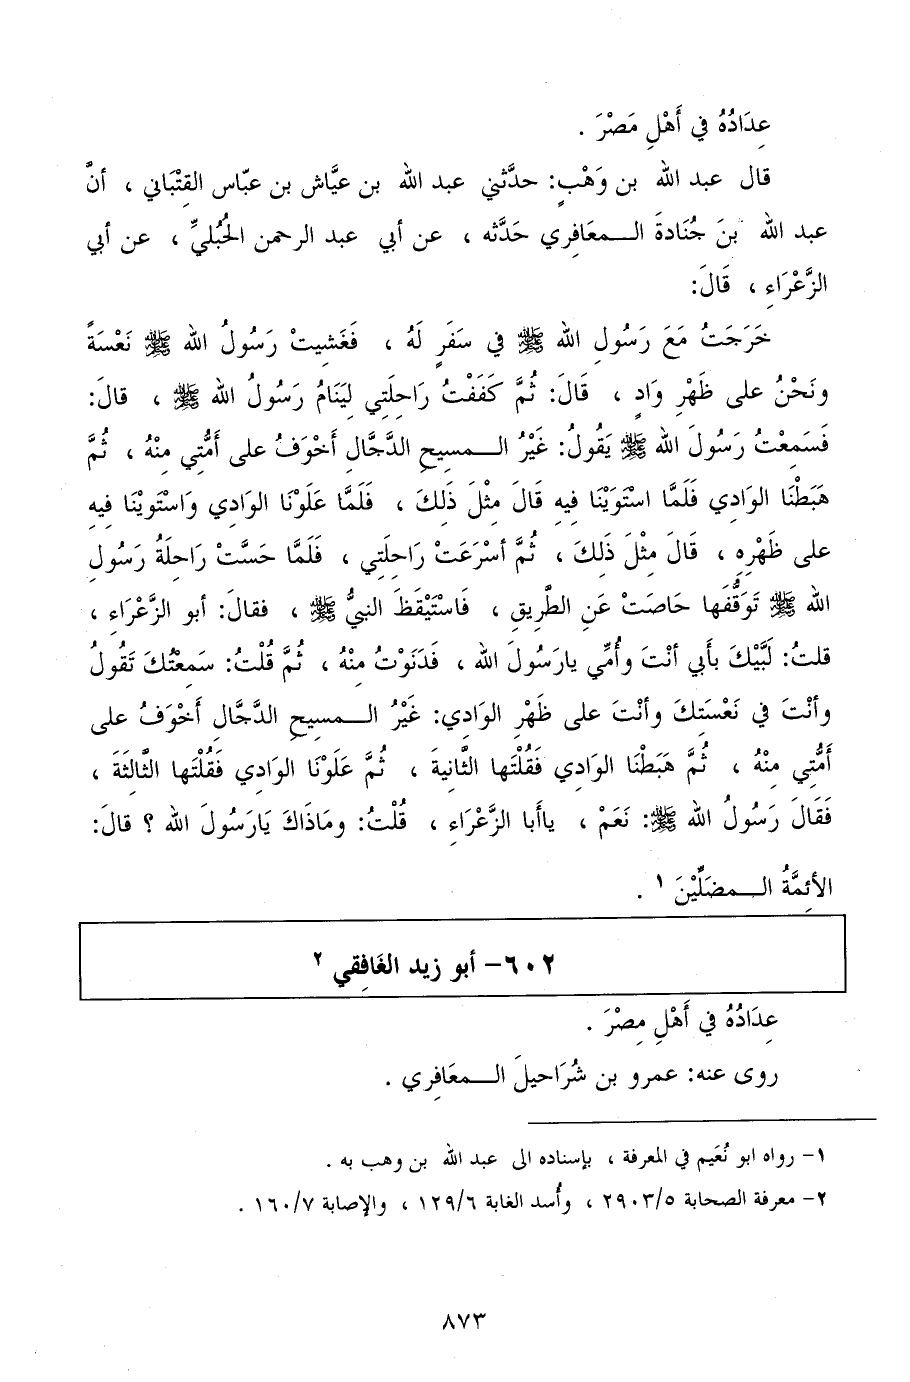 عِدَادُهُ في أَهْلِ مَصْرَ .
قال عبد الله بن وَهْبٍ: حدَّثني عبد الله بن عيَّاش بن عبّاس القِتْبَاني ، أنَّ
عبد الله بنَ جُنَادةَ الـمعَافِري حَدَّثه ، عن أبي عبد الرحمن الحُبُليِّ ، عن أبي
الزَّعْرَاءِ ، قَالَ:
خَرَجَتُ مَعَ رَسُولِ الله ﷺ في سَفَرٍ لَهُ ، فَغَشِيتْ رَسُولُ الله ﷺ نَعْسَةً
ونَحْنُ على ظَهْرِ وَادٍ ، قَالَ: ثُمَّ كَفَفْتُ رَاحِلَتِي لِيَنَامُ رَسُولُ الله ﷺ ، قالَ:
فَسَمِعْتُ رَسُولَ الله ﷺ يَقُولُ: غَيْرُ الـمسِيحِ الدَّجَّالِ أَخْوَفُ على أُمَّتِي مِنْهُ ، ثُمَّ
هَبَطْنَا الوَادِي فَلَمَّا اسْتَوَيْنَا فيه قَالَ مثْلَ ذَلِكَ ، فَلَمَّا عَلَوْنَا الوَادِي وَاسْتَوِيْنا فِيهِ
على ظَهْرِهِ ، قَالَ مثْلَ ذَلِكَ ، ثُمَّ أسْرَعَتْ رَاحِلَتِي ، فَلَمَّا حَسَّتْ رَاحِلَةُ رَسُولِ
الله ﷺ تَوَقُّفَها حَاصَتْ عَنِ الطَّرِيقِ ، فَاسْتَيْقَظَ النبيُّ ﷺ ، فقالَ: أبو الزَّعْرَاءِ ،
قلتُ: لَبَّيْكَ بأَبي أنْتَ وأُمِّي يارَسُولَ الله ، فَدَنَوْتُ مِنْهُ ، ثُمَّ قُلْتُ: سَمِعْتُكَ تَقُولُ
وأنْتَ في نَعْسَتِكَ وأنْتَ على ظَهْرِ الوَادِي: غَيْرُ الـمسِيحِ الدَّجَّالِ أَخْوَفُ على
أُمَّتِي مِنْهُ ، ثُمَّ هَبَطْنَا الوَادِي فَقُلْتَها الثَّانِيةَ ، ثُمَّ عَلَوْنَا الوَادِي فَقُلْتَها الثَّالِثَةَ ،
فَقَالَ رَسُولُ الله ﷺ: نَعَمْ ، ياأَبا الزَّعْرَاءِ ، قُلْتُ: ومَاذَاكَ يَارَسُولَ الله ؟ قالَ:
الأئِمَّةُ الـمضَلِّيْنَ ١ .
٦٠٢- أبو زيد الغَافِقي ٢
عِدَادُهُ في أَهْلِ مِصْرَ .
روى عنه: عمرو بن شُرَاحيلَ الـمعَافِري .
١- رواه ابو نُعَيم في المعرفة ، بإسناده الى عبد الله بن وهب به .
٢- معرفة الصحابة ٢٩٠٣/٥ ، وأُسد الغابة ١٢٩/٦ ، والإصابة ١٦٠/٧ .
٨٧٣